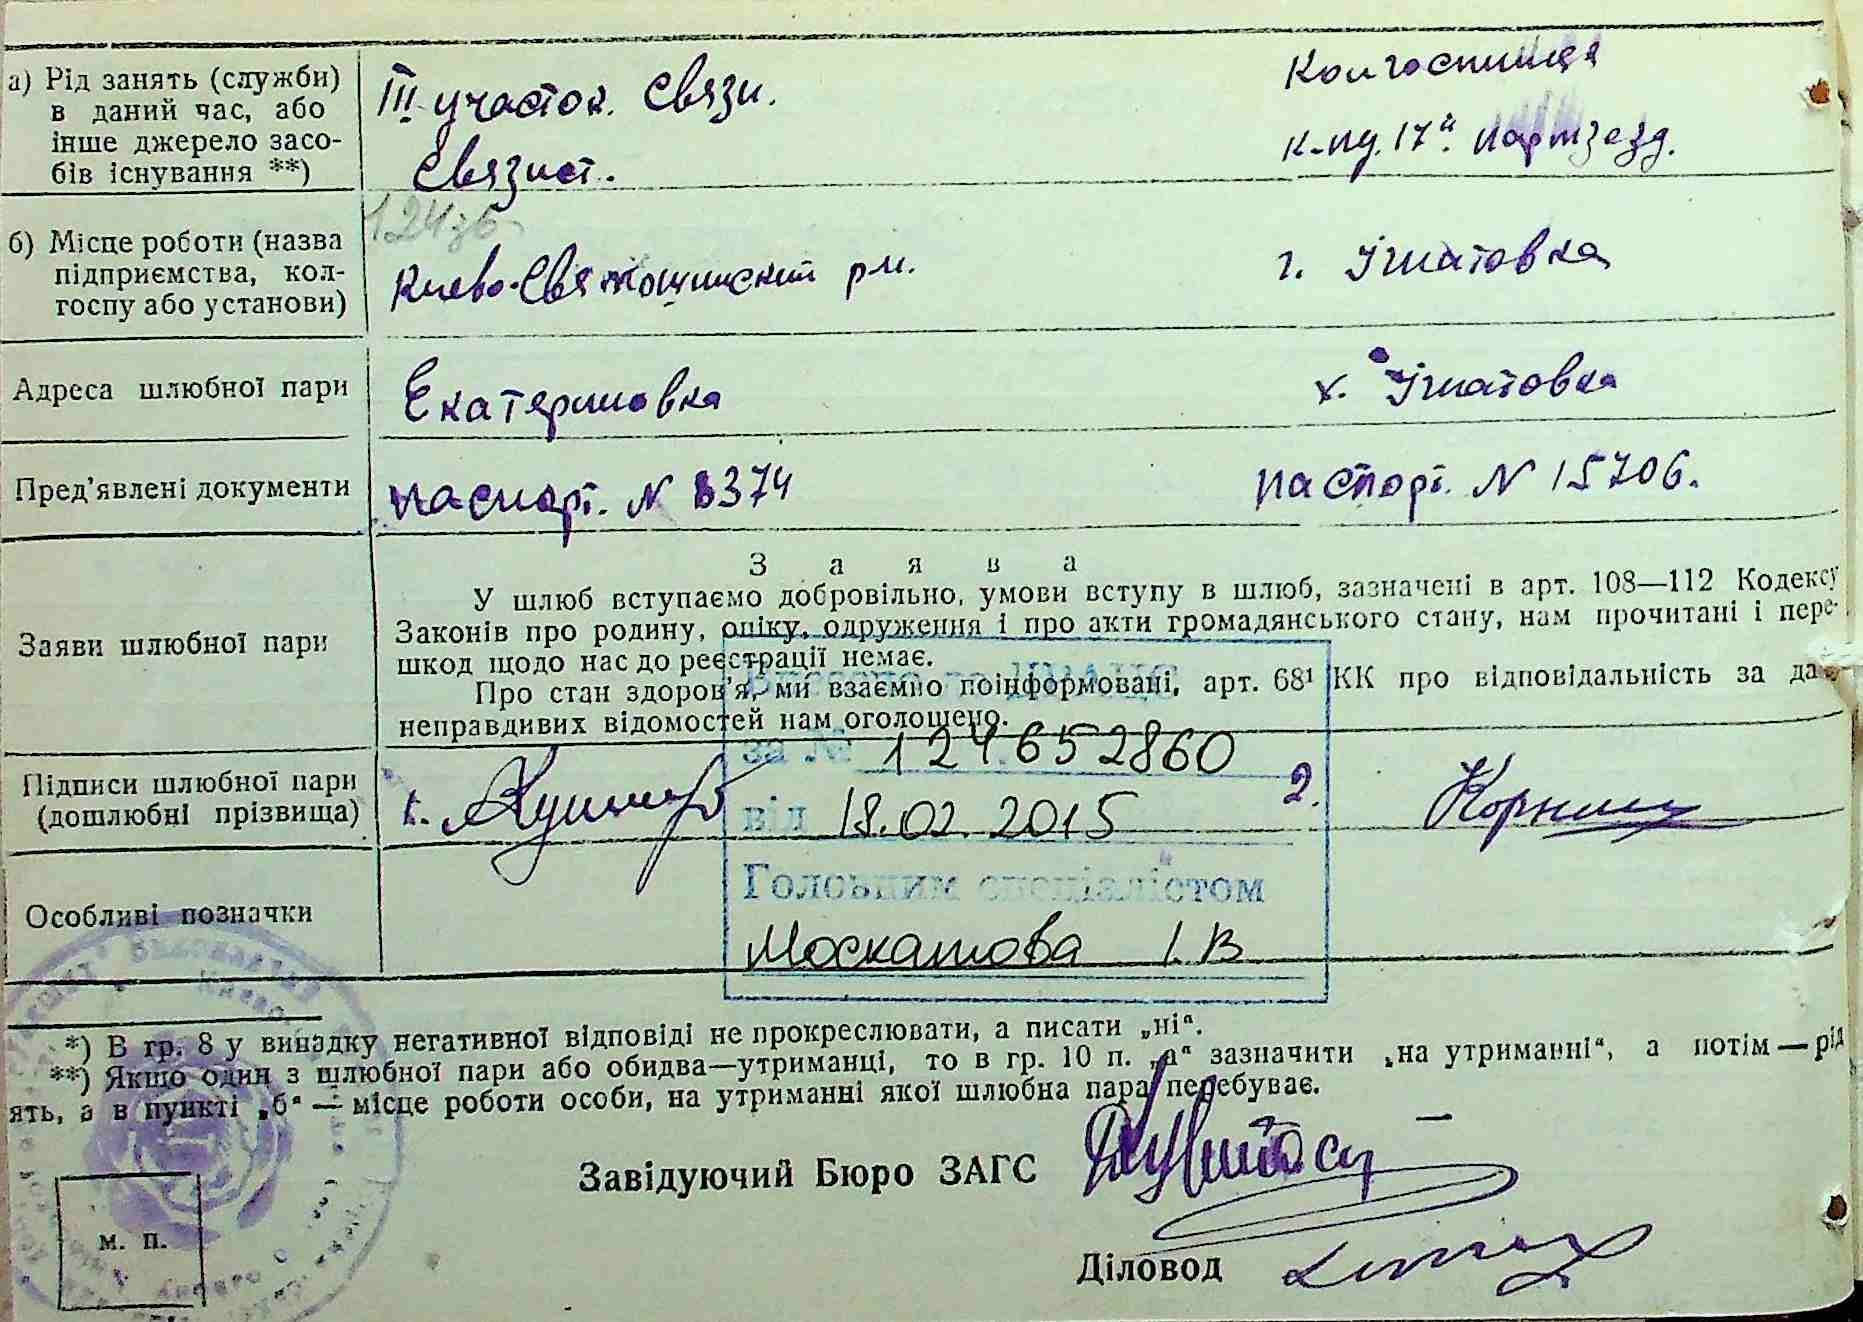 а) Рід занять (служби)
в даний час, або
інше джерело засо-
бів існування **)
III участок. Связи.
Связист.
Колгоспниця
к-пд. 17й партзезд.
б) Місце роботи (назва
підприємства, кол-
госпу або установи)
Киево-Святошинский р-н.
г. Ігнатовка
Адреса шлюбної пари
Екатериновка
х. Ігнатовка
Пред’явлені документи
паспорт. N 8374
паспорт. N 15706.
Заява
Заяви шлюбної пари
У шлюб вступаємо добровільно, умови вступу в шлюб, зазначені в арт. 108—112 Кодексу
Законів про родину, опіку, одруження і про акти громадянського стану, нам прочитані і пере-
шкод щодо нас до реєстрації немає.
Про стан здоров’я, ми взаємно поінформовані, арт. 68¹ КК про відповідальність за дачу
неправдивих відомостей нам оголошено.
за № 124652860
від 18.02.2015
Головним спеціалістом
Москатова І.В
Підписи шлюбної пари
(дошлюбні прізвища)
1.
2.
Особливі позначки
*) В гр. 8 у випадку негативної відповіді не прокреслювати, а писати „ні“.
**) Якщо один з шлюбної пари або обидва—утриманці, то в гр. 10 п. „а“ зазначити „на утриманні“, а потім — рід
ять, а в пункті „б“ — місце роботи особи, на утриманні якої шлюбна пара перебуває.
Завідуючий Бюро ЗАГС
Діловод
м. п.